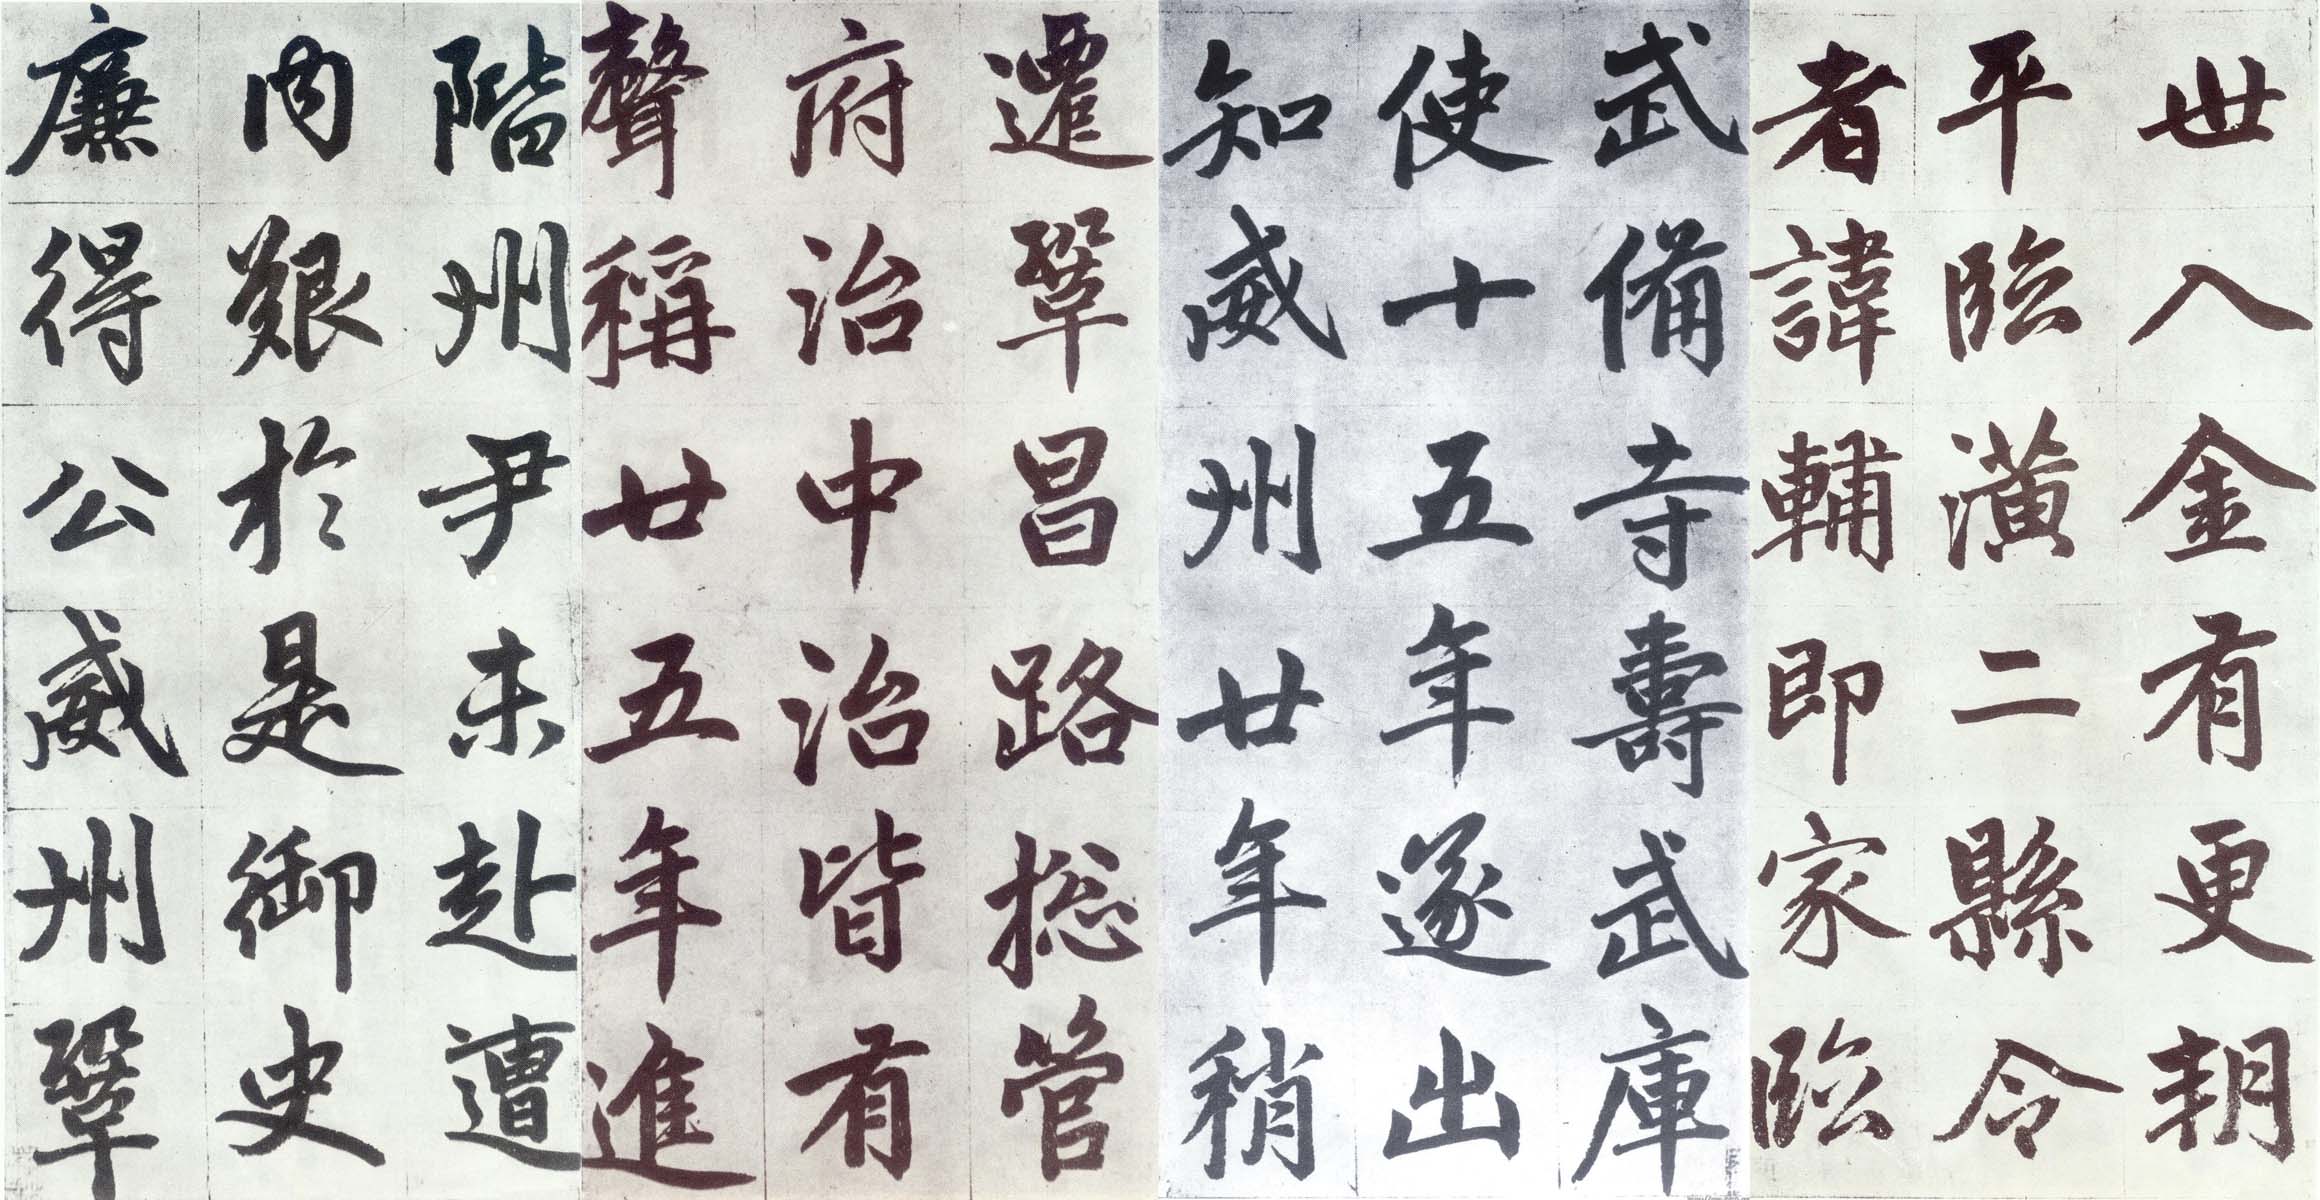 世入金有更朝
平臨潢二縣令
者諱輔即家臨
武備寺壽武庫
使十五年遂出
知威州廿年稍
遷鞏昌路捴管
府治中治皆有
聲稱廿五年進
階州尹未赴遭
內艱於是御史
廉得公威州鞏